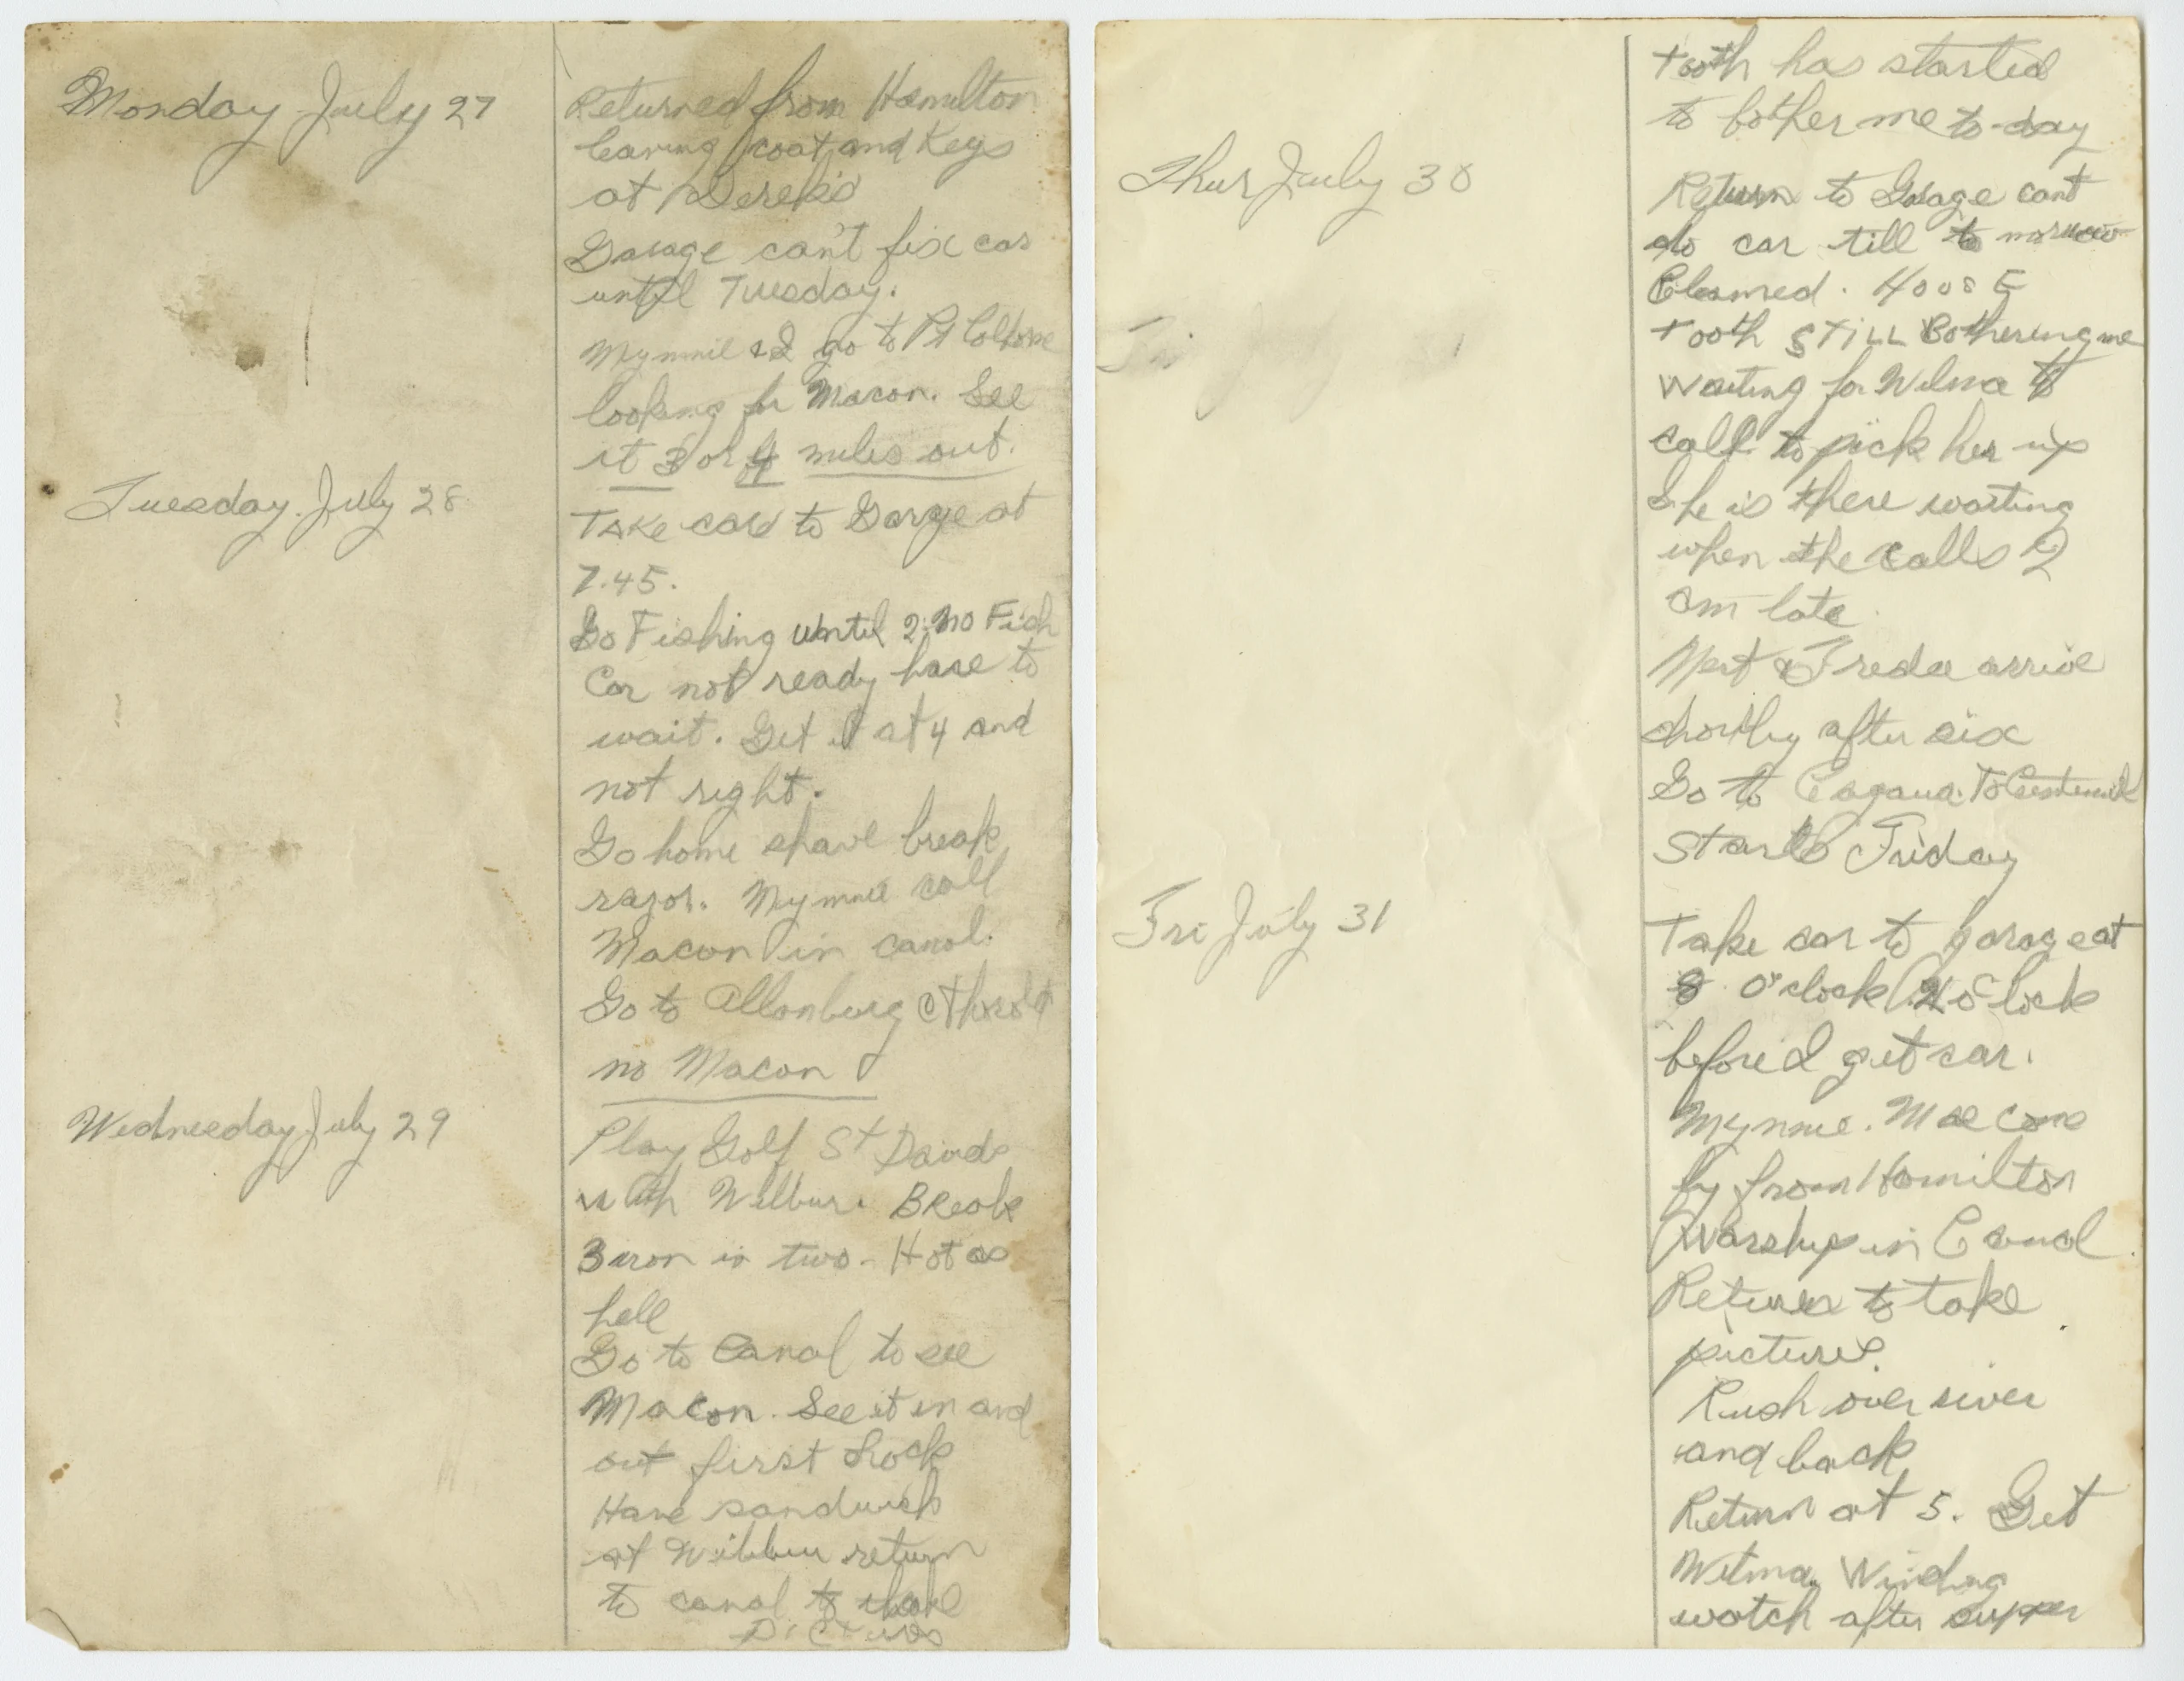 Monday July 27
Returned from Hamilton
leaving coat and Keys
at Derek's
Garage can't fix car
until Tuesday.
Mynnie & I go to Pt Colborne
looking for Macon. See
it 3 or 4 miles out.
Tuesday July 28
Take car to Garge at
7.45.
Go Fishing until 2. no Fish
Car not ready have to
wait. Get it at 4 and
not right.
Go home shave break
razor. Mynnie call
Macon in canal.
Go to Allanburg & Thorold
no Macon
Wednesday July 29
Play Golf St Davids
with Wilbur. Break
3 iron in two - Hot as
hell
Go to Canal to see
Macon. See it in and
out first Lock
Have sandwich
at Wilbur return
to canal to take
Pictures
Tooth has started
to bother me to-day
Thur July 30
Return to Garage cant
do car till to morrow
Tooth STILL Bothering me
Waiting for Wilma to
call to pick her up
She is there waiting
when she calls I
am late
Mert & Freda arrive
shortly after six
Go to
Starts Friday
Fri July 31
Take car to garage at
8 O'clock 2 o'clock
before I get car.
Mynnie. Mae come
by from Hamilton
Warship in Canal
Return to take
pictures.
Rush over river
and back
Return at 5. Get
Wilma. Winding
watch after supper